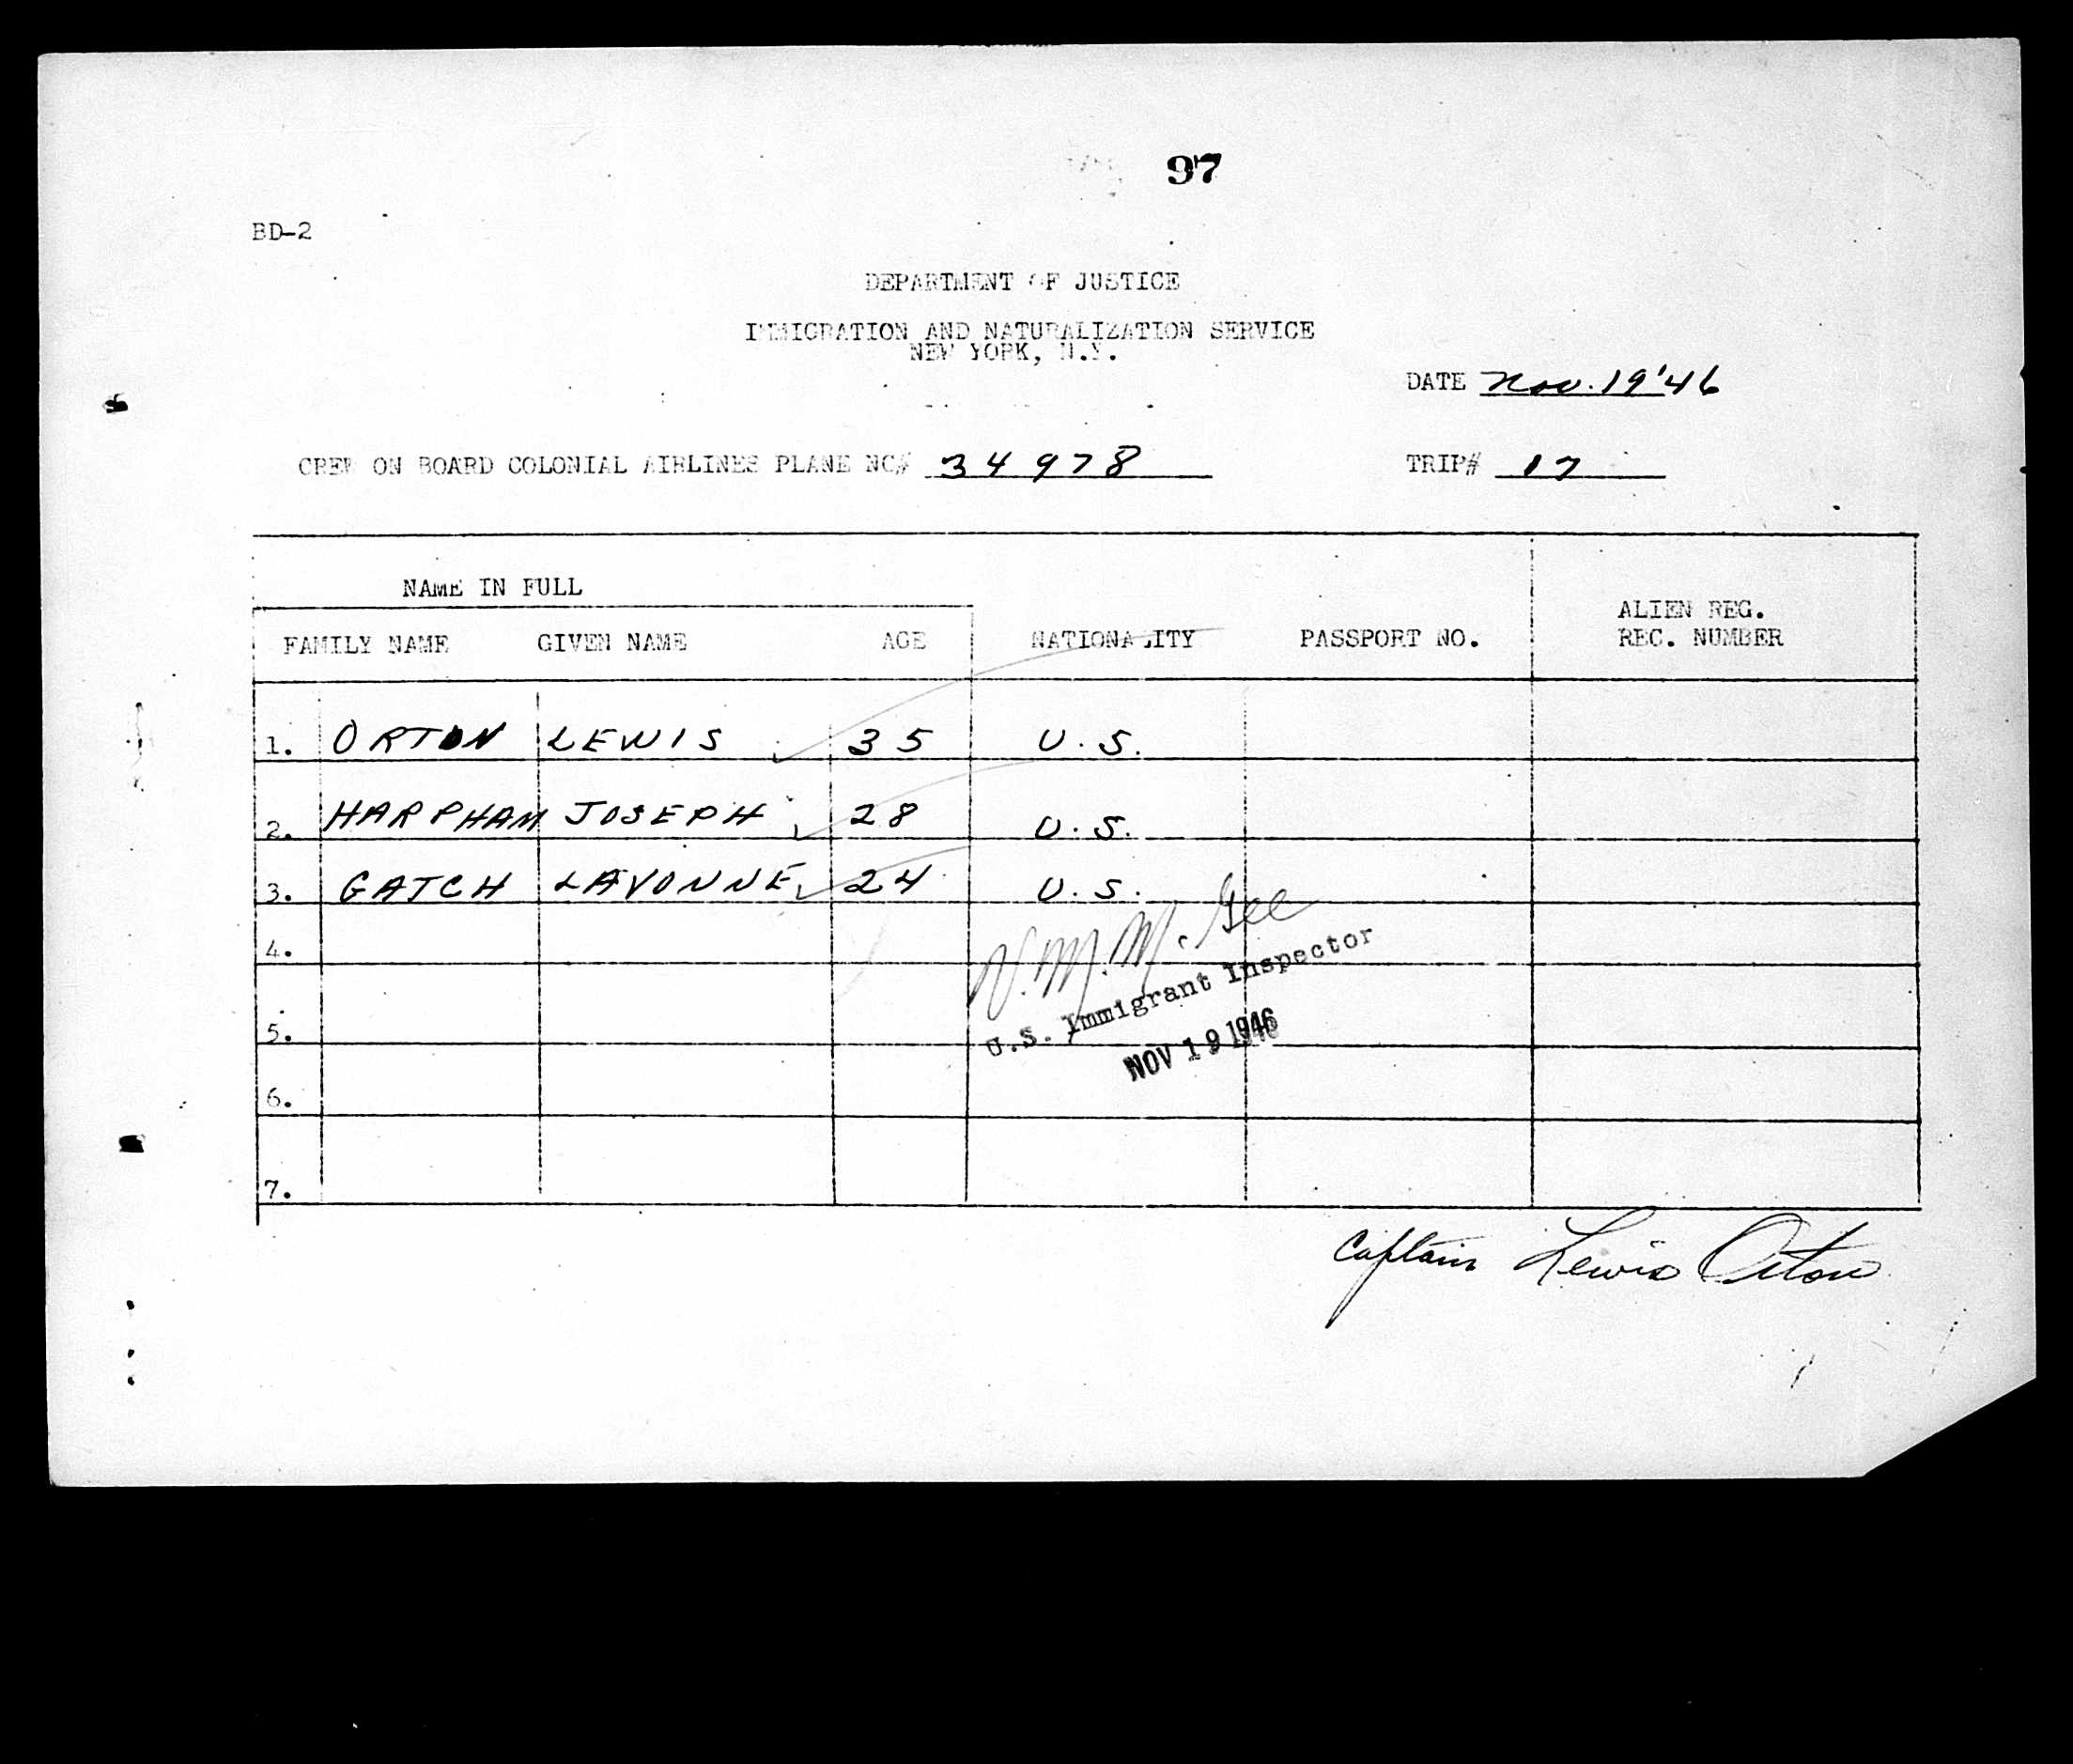 97
BD-2
DEPARTMENT OF JUSTICE
IMMIGRATION AND NATURALIZATION SERVICE
NEW YORK, N.Y.
DATE Nov. 19 '46
CREW ON BOARD COLONIAL AIRLINES PLANE NC# 34978 TRIP# 17
NAME IN FULL
FAMILY NAME GIVEN NAME AGE NATIONALITY PASSPORT NO. ALIEN REG. REC. NUMBER
1. ORTON LEWIS 35 U.S.
2. HARPHAM JOSEPH 28 U.S.
3. GATCH LAVONNE 24 U.S.
4.
5.
6.
7.
M. McGee
U.S. Immigrant Inspector
NOV 19 1946
Captain Lewis Orton